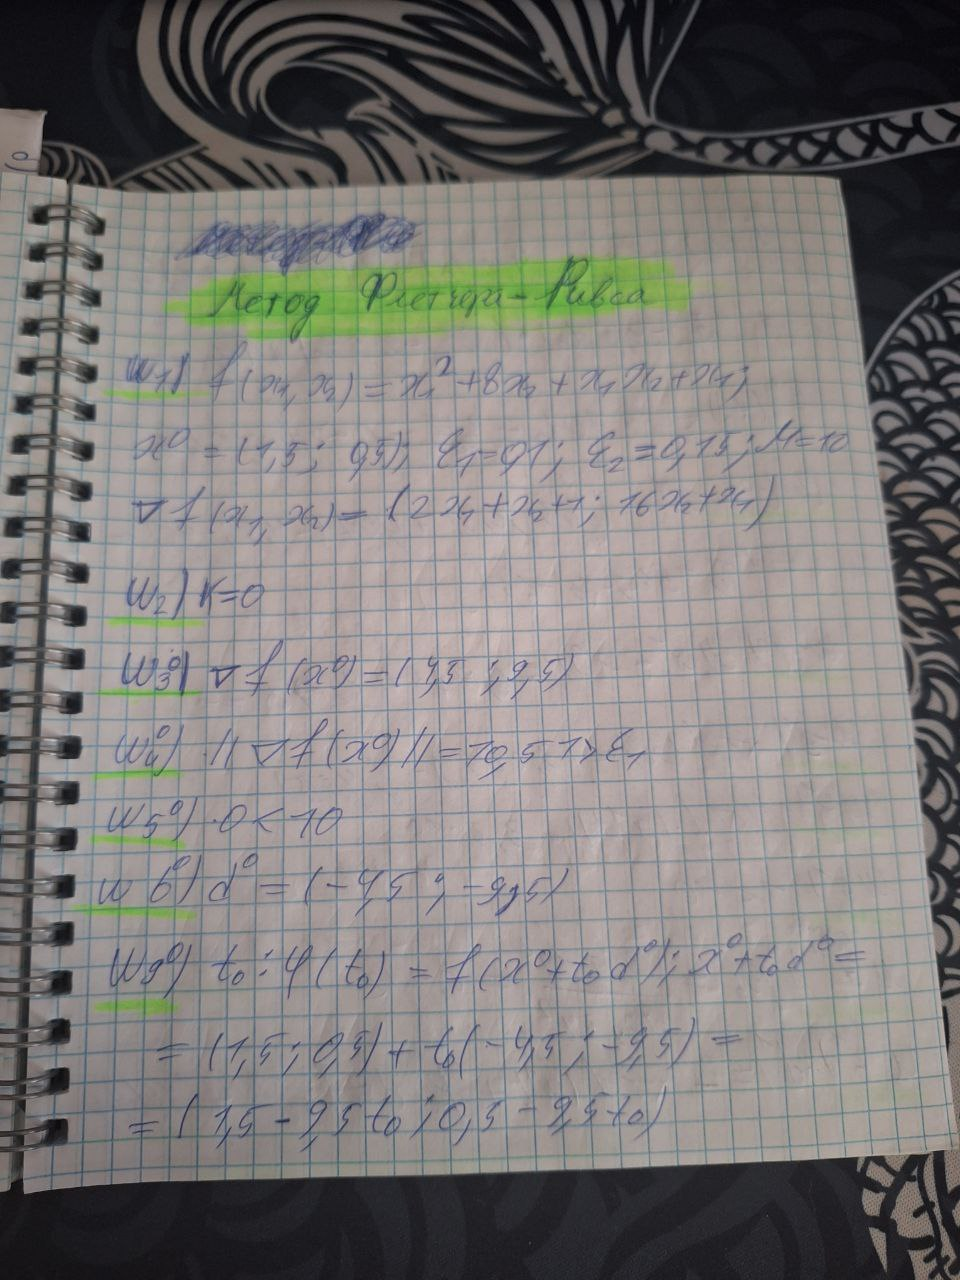 Метод Флетчера-Ривса
Ш1) f(x1, x2) = x1² + 8x2 + x1x2 + x1;
x⁰ = (1,5; 0,5); ε1=0,1; ε2=0,15; M=10
∇f(x1, x2) = (2x1+x2+1; 16x2+x1)
Ш2) k=0
Ш3⁰) ∇f(x⁰) = (4,5; 9,5)
Ш4⁰) ||∇f(x⁰)|| = 10,51 > ε1
Ш5⁰) 0 < 10
Ш6⁰) d⁰ = (-4,5; -9,5)
Ш8⁰) t0: φ(t0) = f(x⁰+t0d⁰); x⁰+t0d⁰ =
= (1,5; 0,5) + t0(-4,5; -9,5) =
= (1,5 - 9,5t0; 0,5 - 9,5t0)